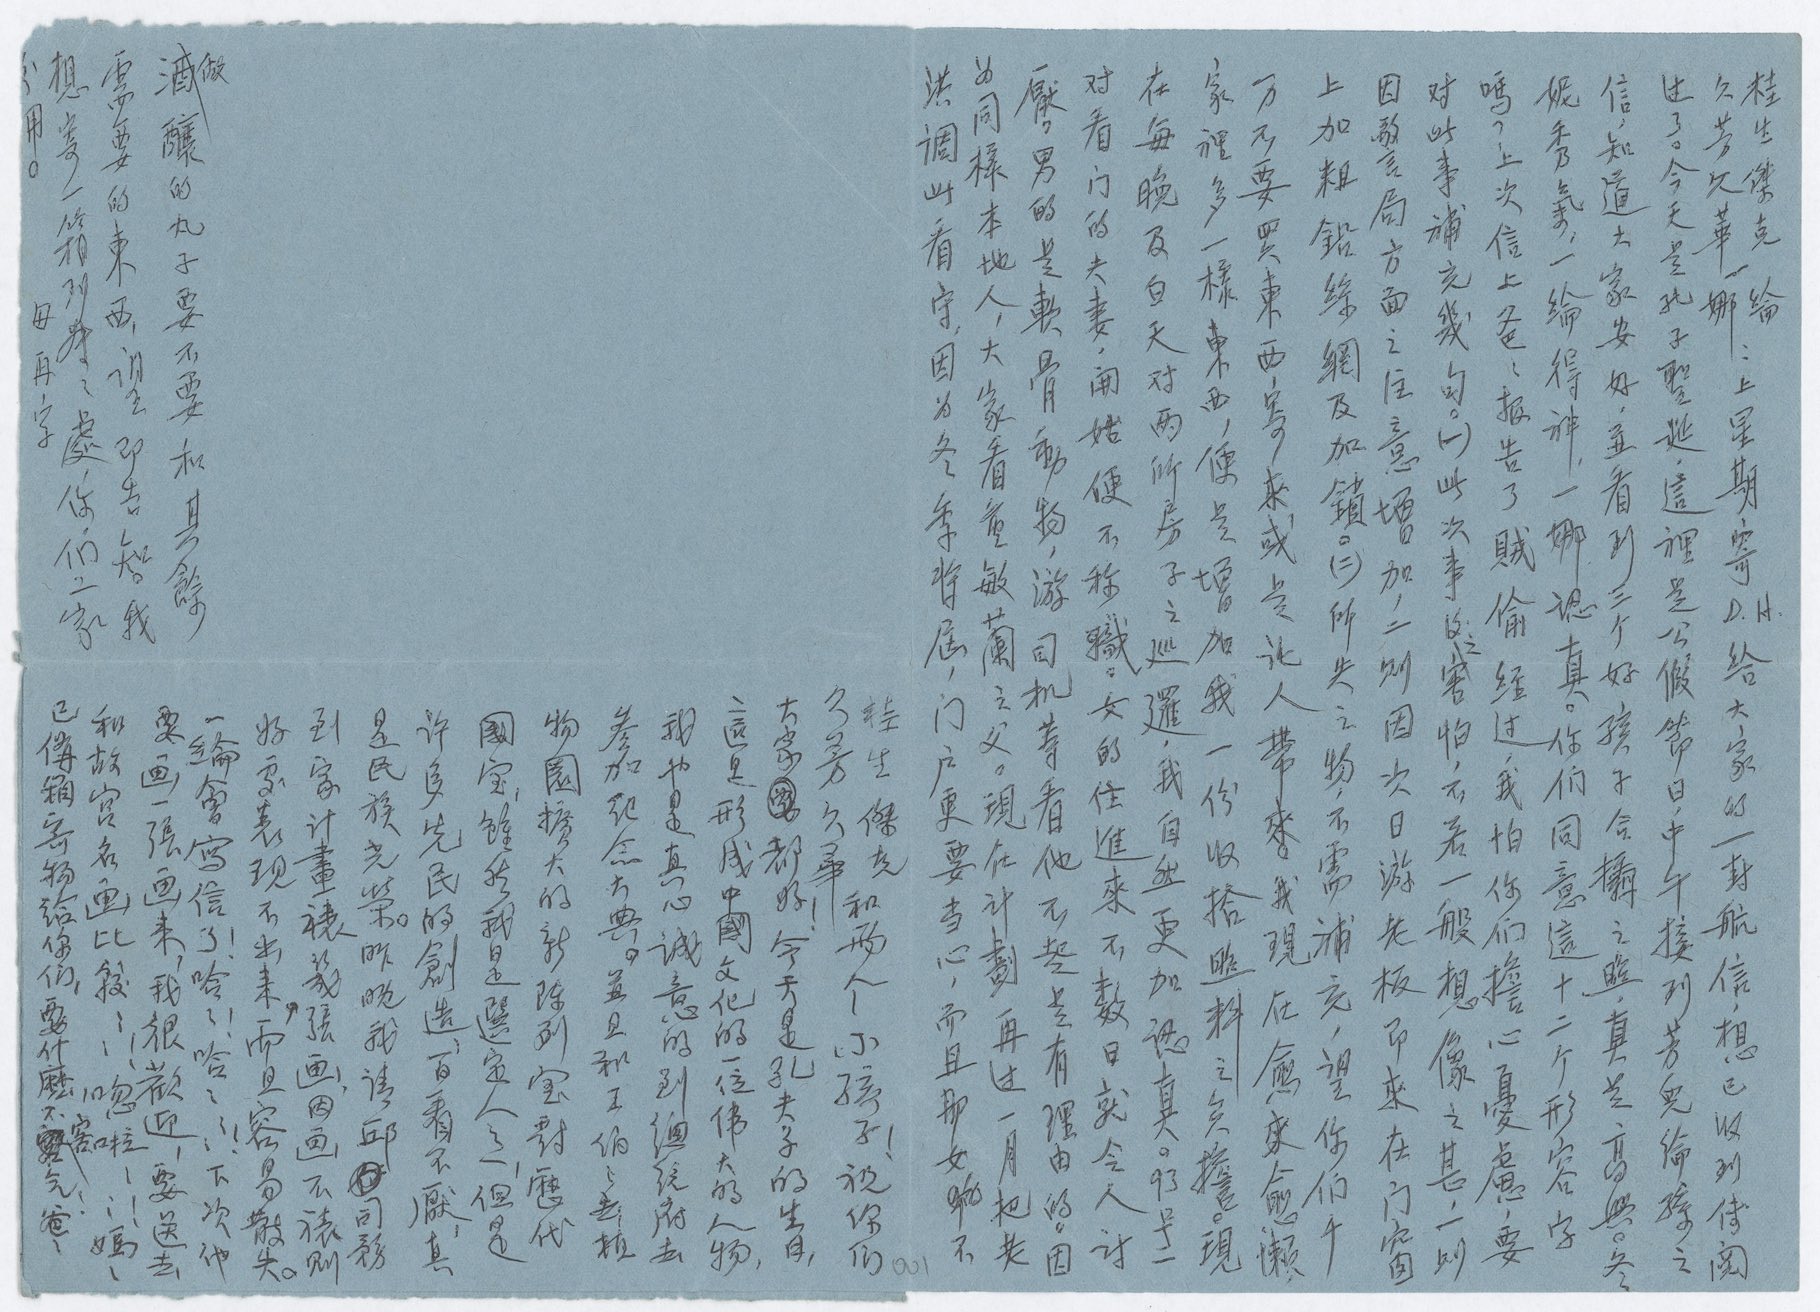 桂生傑克一綸
久芳久華一娜：上星期寄D.H.給大家的一封航信，想已收到傳閱
过了。今天是孔子聖誕，這裡是公假節日，中午接到芳兒綸孫之
信，知道大家安好，並看到三个好孩子合攝之照，真是高興。冬
妮秀氣，一綸得神，一娜認真。你们同意這十二个形容字
嗎？上次信上爸爸报告了賊偷经过，我怕你们擔心憂慮，要
对此事補充幾句。(一)此次事后之害怕，不若一般想像之甚，一则
因警局方面之注意增加，二则因次日游老板即來在门窗
上加粗鉛絲網及加鎖。(二)所失之物，不需補充，望你们千
万不要買東西寄來或是託人帶來。我現在愈來愈懶，
家裡多一樣東西，便是增加我一份收拾照料之負擔。現
在每晚及白天对两所房子之巡邏，我自然更加認真。93号二
对看门的夫妻，開始便不称職。女的住進來不數日就令人讨
厭，男的是軟骨動物，游司机等看他不起是有理由的。因
为同樣本地人，大家看重敏蘭之父。現在计劃再过一月把老
洪调此看守，因为冬季将屆，门户更要当心，而且那女〇不
桂生傑克和两个小孩子！祝你们
久芳久華！
大家都好！今天是孔夫子的生日，
這是形成中國文化的一位偉大的人物，
我也是真心誠意的到總統府去
參加紀念大典。並且和王伯伯去植
物園擴大的新陈列室對歷代
國宝，雖然我是選定人之一，但是
许多先民的創造，百看不厭，真
是民族光榮。昨晚我请邱司務
到家计畫裱幾張画，因画不裱则
好處表現不出來，而且容易散失。
一綸會寫信了！哈哈！哈哈！！下次他
要画一張画來，我很歡迎，要送去
和故宮名画比較比較！！忽啦啦！！媽媽
已備箱寄物給你们，要什麼不要客气！爸爸
做
酒釀的丸子要不要和其餘
需要的東西，望即告知。我
想寄一箱到芳芳處，你们二家
分用。
母再字
001